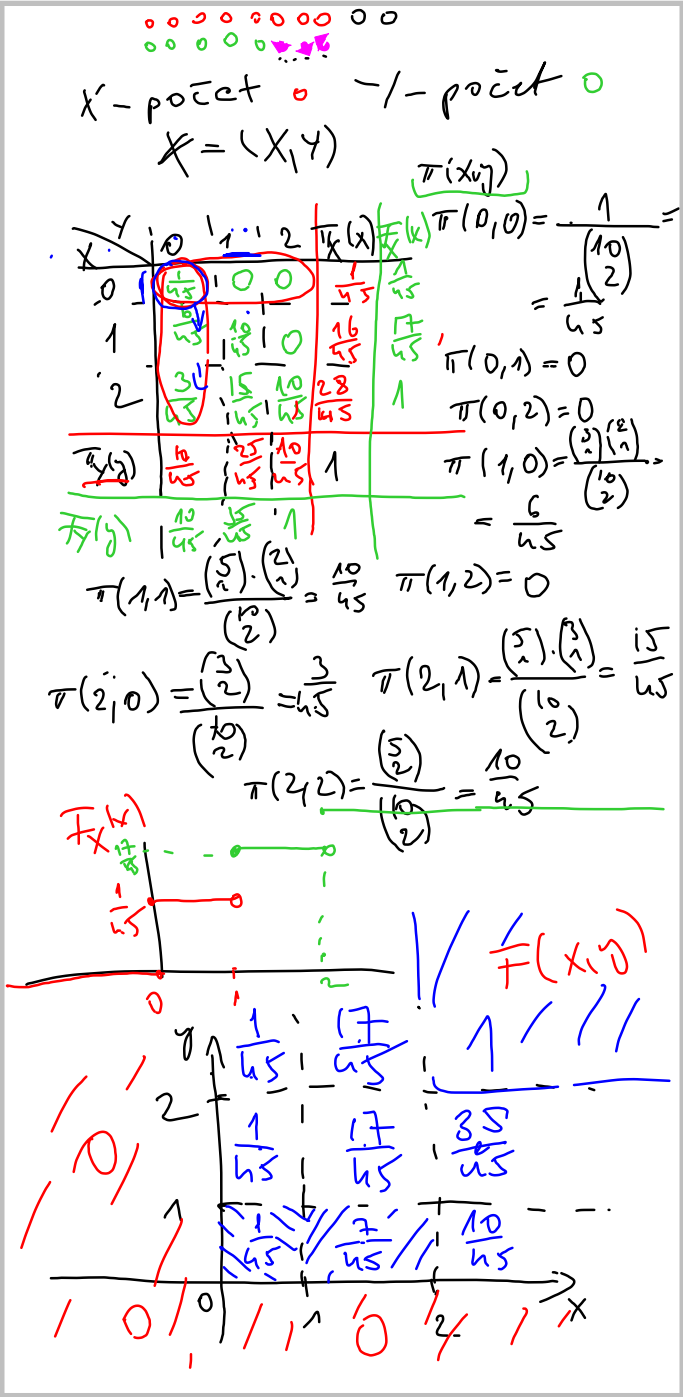 X - počet o Y - počet o
X = (X,Y)
π(x,y)
X Y 0 1 2 π_X(x) F_X(x)
0 1/45 0 0 1/45 1/45
1 6/45 10/45 0 16/45 17/45
2 3/45 15/45 10/45 28/45 1
π_Y(y) 10/45 25/45 10/45 1
F_Y(y) 10/45 35/45 1
π(0,0) = 1/(10 2) =
= 1/45
π(0,1) = 0
π(0,2) = 0
π(1,0) = (3 1)(2 1)/(10 2) =
= 6/45
π(1,1) = (5 1)·(2 1)/(10 2) = 10/45 π(1,2) = 0
π(2,0) = (3 2)/(10 2) = 3/45 π(2,1) = (5 1)·(3 1)/(10 2) = 15/45
π(2,2) = (5 2)/(10 2) = 10/45
F_X(x)
17/45
1/45
0 1 2
F(x,y)
y 1/45 17/45 1
2
0 1/45 17/45 35/45
1 1/45 7/45 10/45
0 x
0 1 0 2